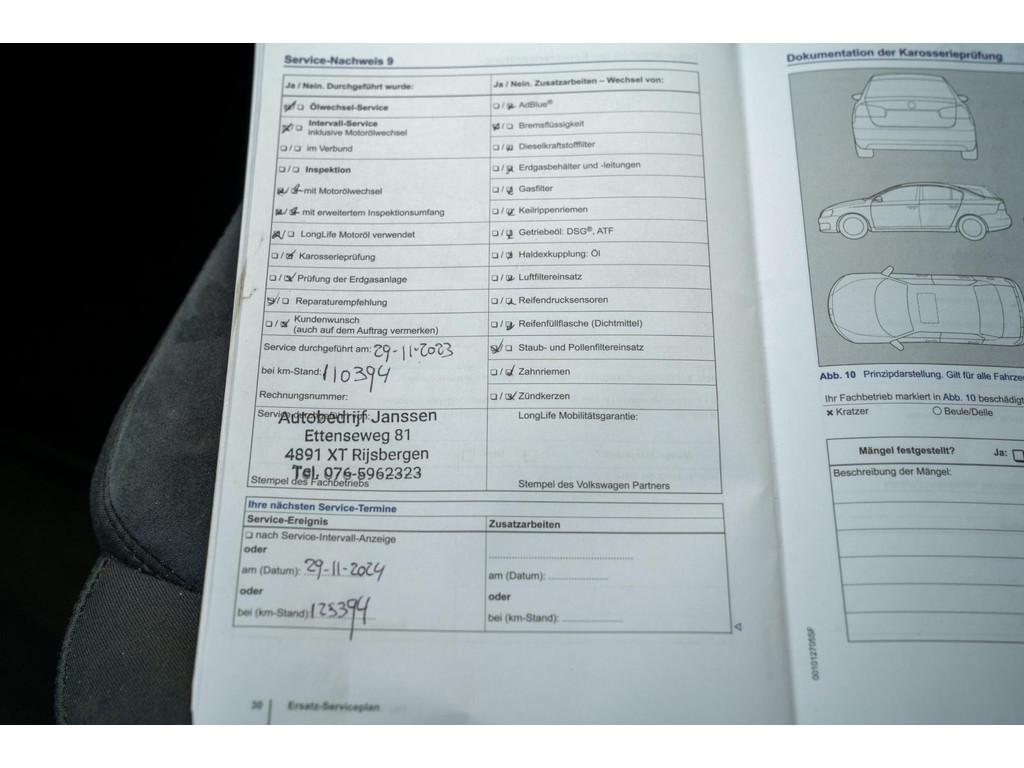 Service-Nachweis 9
Ja / Nein. Durchgeführt wurde:
Ölwechsel-Service
Intervall-Service
inklusive Motorölwechsel
im Verbund
Inspektion
mit Motorölwechsel
mit erweitertem Inspektionsumfang
LongLife Motoröl verwendet
Karosserieprüfung
Prüfung der Erdgasanlage
Reparaturempfehlung
Kundenwunsch
(auch auf dem Auftrag vermerken)
Service durchgeführt am: 29-11-2023
bei km-Stand: 110394
Rechnungsnummer:
Autobedrijf Janssen
Ettenseweg 81
4891 XT Rijsbergen
Tel. 076-5962323
Stempel des Fachbetriebs
Ja / Nein. Zusatzarbeiten – Wechsel von:
AdBlue®
Bremsflüssigkeit
Dieselkraftstofffilter
Erdgasbehälter und -leitungen
Gasfilter
Keilrippenriemen
Getriebeöl: DSG®, ATF
Haldexkupplung: Öl
Luftfiltereinsatz
Reifendrucksensoren
Reifenfüllflasche (Dichtmittel)
Staub- und Pollenfiltereinsatz
Zahnriemen
Zündkerzen
LongLife Mobilitätsgarantie:
Stempel des Volkswagen Partners
Ihre nächsten Service-Termine
Service-Ereignis
nach Service-Intervall-Anzeige
oder
am (Datum): 29-11-2024
oder
bei (km-Stand) 125394
Zusatzarbeiten
am (Datum):
oder
bei (km-Stand):
30 Ersatz-Serviceplan
Dokumentation der Karosserieprüfung
Abb. 10 Prinzipdarstellung. Gilt für alle
Ihr Fachbetrieb markiert in Abb. 10
× Kratzer
Beule/Delle
Mängel festgestellt? Ja:
Beschreibung der Mängel: